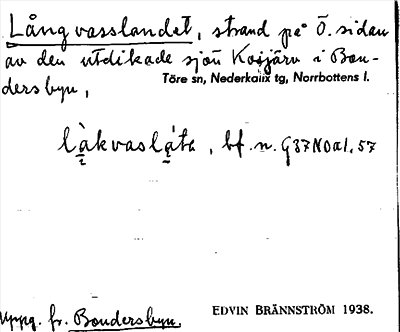 Långvasslandet, strand på Ö. sidan
av den utdikade sjön Kosjärv i Bon-
dersbyn,
Töre sn, Nederkalix tg, Norrbottens l.
bf. n. G37N0a1.57
Uppg. fr. Bondersbyn.
EDVIN BRÄNNSTRÖM 1938.